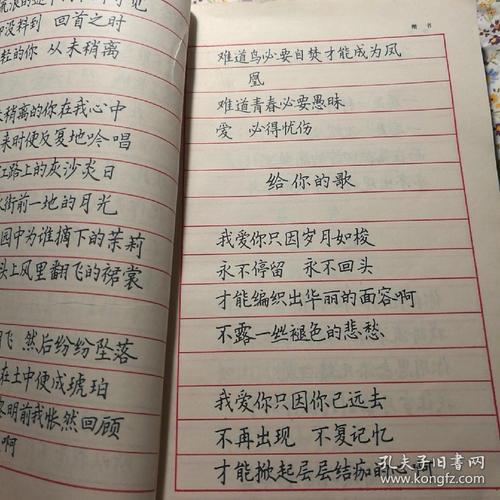 却没料到 回首之时
轻的你 从未稍离
未稍离的你在我心中
来时便反复地吟唱
江路上的灰沙炎日
水街前一地的月光
园中为谁摘下的茉莉
头上风里翻飞的裙裳
飞 然后纷纷坠落
在土中便成琥珀
黎明前我怅然回顾
啊
楷 书
难道鸟必要自焚才能成为凤
凰
难道青春必要愚昧
爱 必得忧伤
给你的歌
我爱你只因岁月如梭
永不停留 永不回头
才能编织出华丽的面容啊
不露一丝褪色的悲愁
我爱你只因你已远去
不再出现 不复记忆
才能掀起层层结痂的心啊
孔夫子旧书网